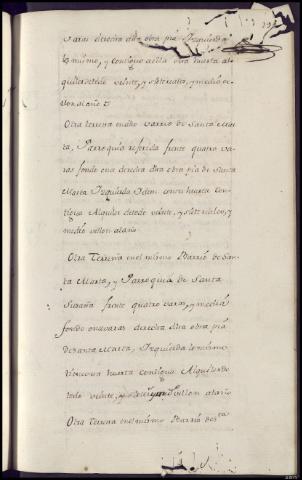 varas derecha dha obra pia Izquierda
lo mismo, y contigua a ella otra huerta al
quiler de todo veinte, y siete reales, y medio de
vellon al año
Otra terrena en dho varrio de Santa Mar
ta, Parroquia referida frente quatro va
ras fondo once derecha dha obra pia de Santa
Marta Izquierda Idem con su huerta con
tigua Alquiler de todo veinte, y siete reales, y
medio vellon al año
Otra Terrena en el mismo Barrio de San
ta Marta, y Parroquia de Santa
Susana frente quatro varas, y media
fondo once varas derecha dha obra pia
de Santa Marta, Izquierda lo mismo
tiene una huerta contigua Alquiler de
todo veinte, y vellon al año
Otra Terrena en el mismo Barrio de Sta